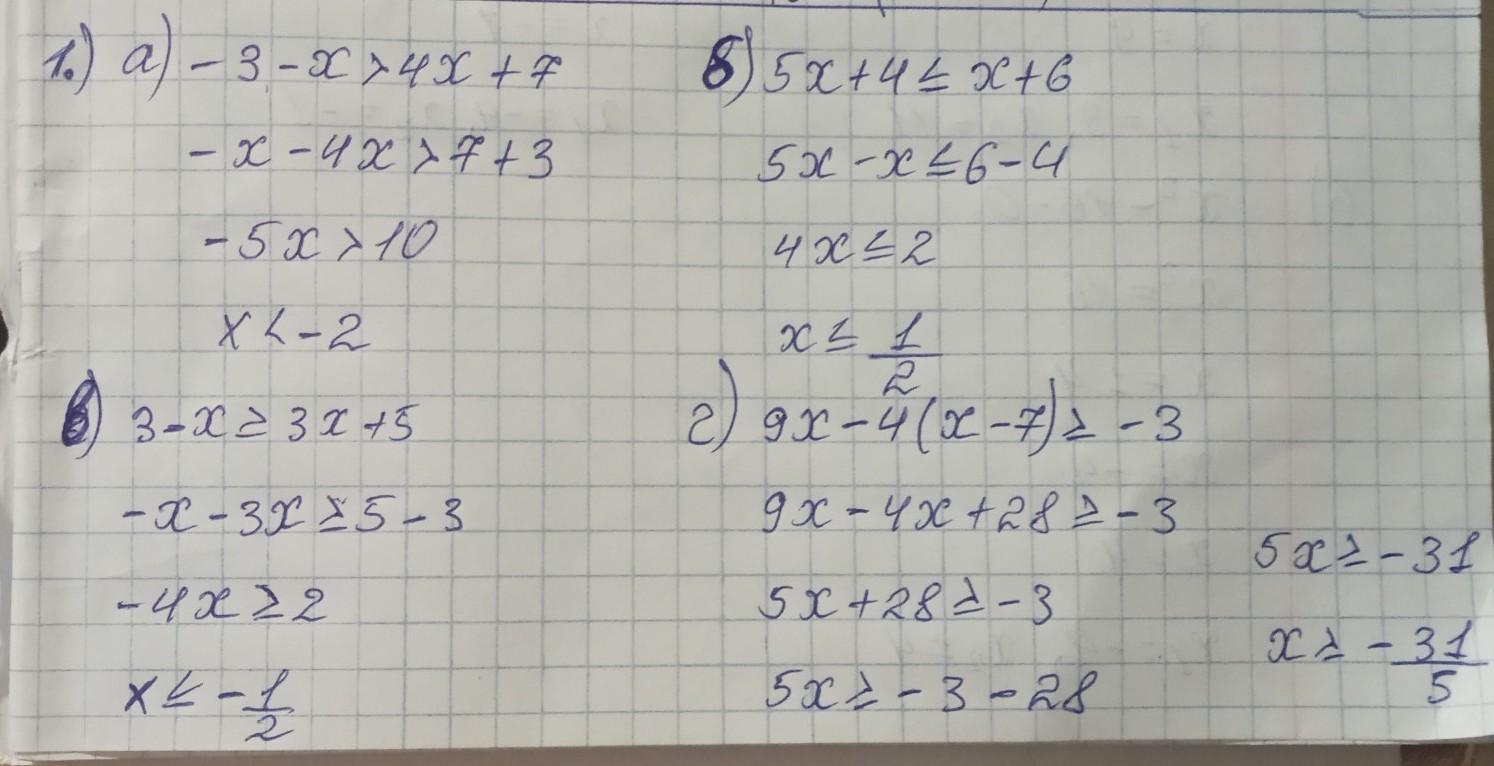 1.) а) -3-x>4x+7
-x-4x>7+3
-5x>10
x<-2
б) 5x+4≤x+6
5x-x≤6-4
4x≤2
x≤1/2
в) 3-x≥3x+5
-x-3x≥5-3
-4x≥2
x≤-1/2
г) 9x-4(x-7)≥-3
9x-4x+28≥-3
5x+28≥-3
5x≥-3-28
5x≥-31
x≥-31/5